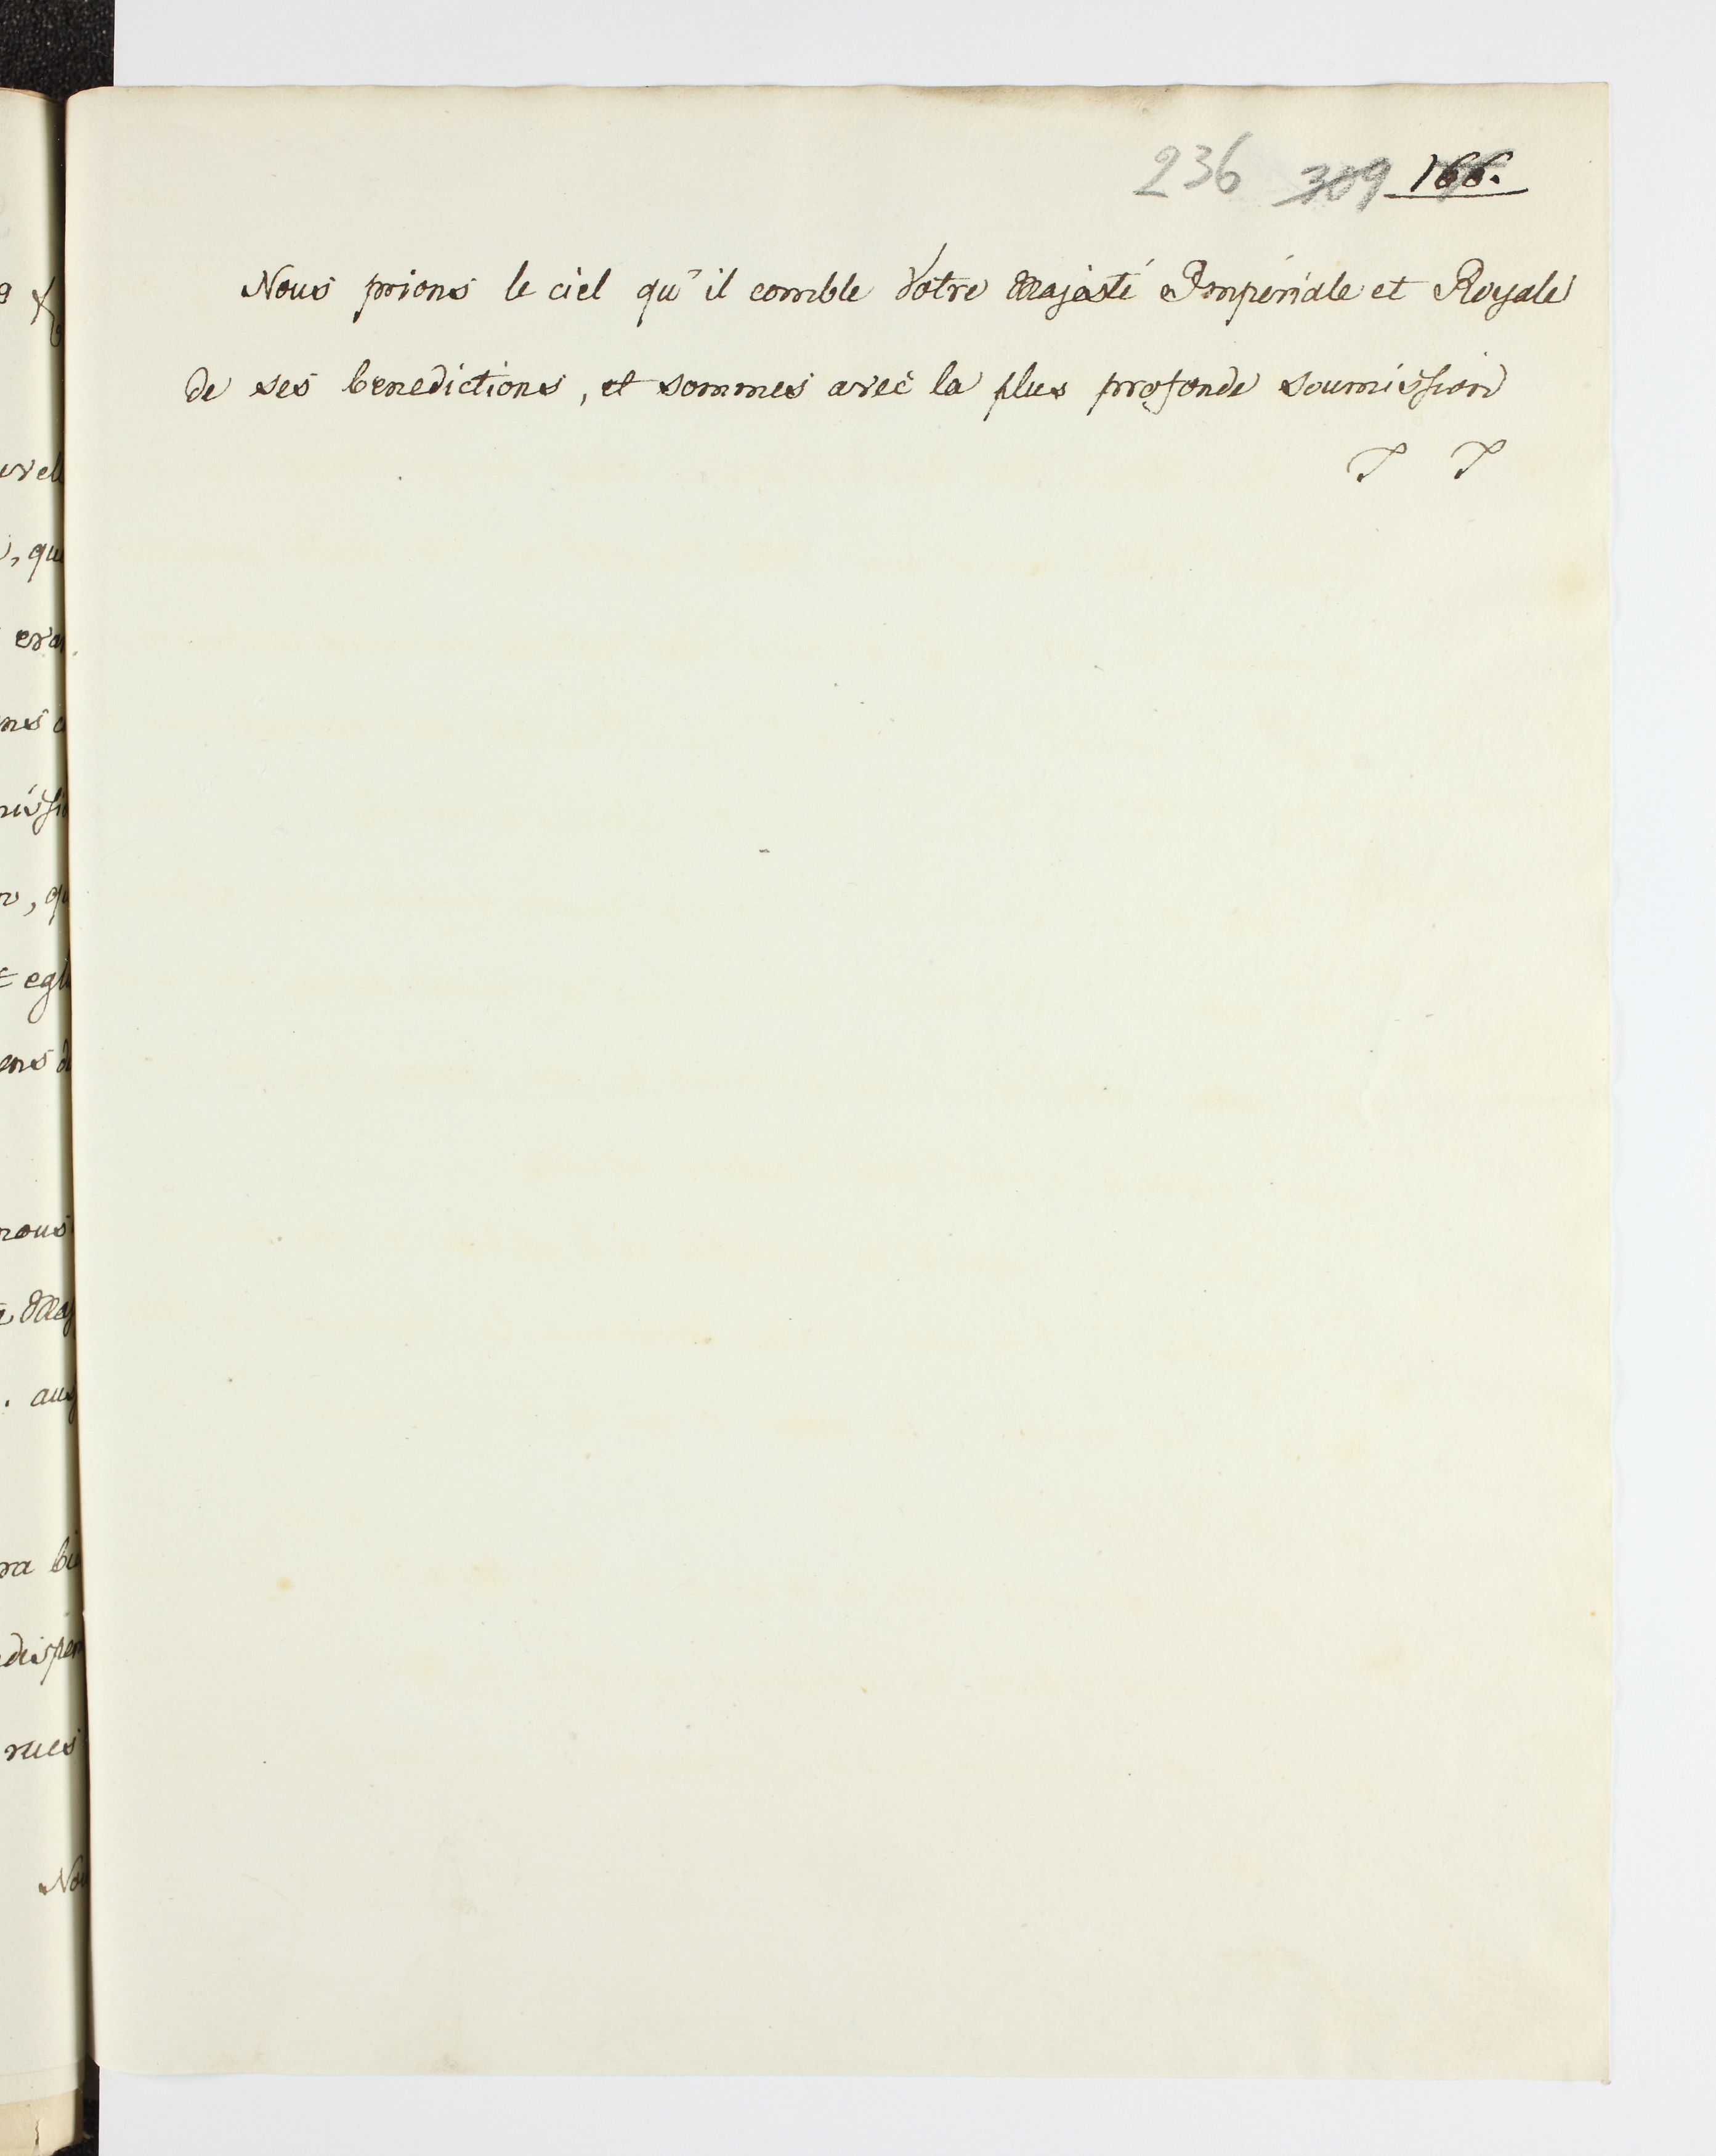 236 309 166.
Nous prions le ciel qu'il comble Votre Majesté Impériale et Royale
de ses benedictions, et sommes avec la plus profonde soumission
T T
nous
rues